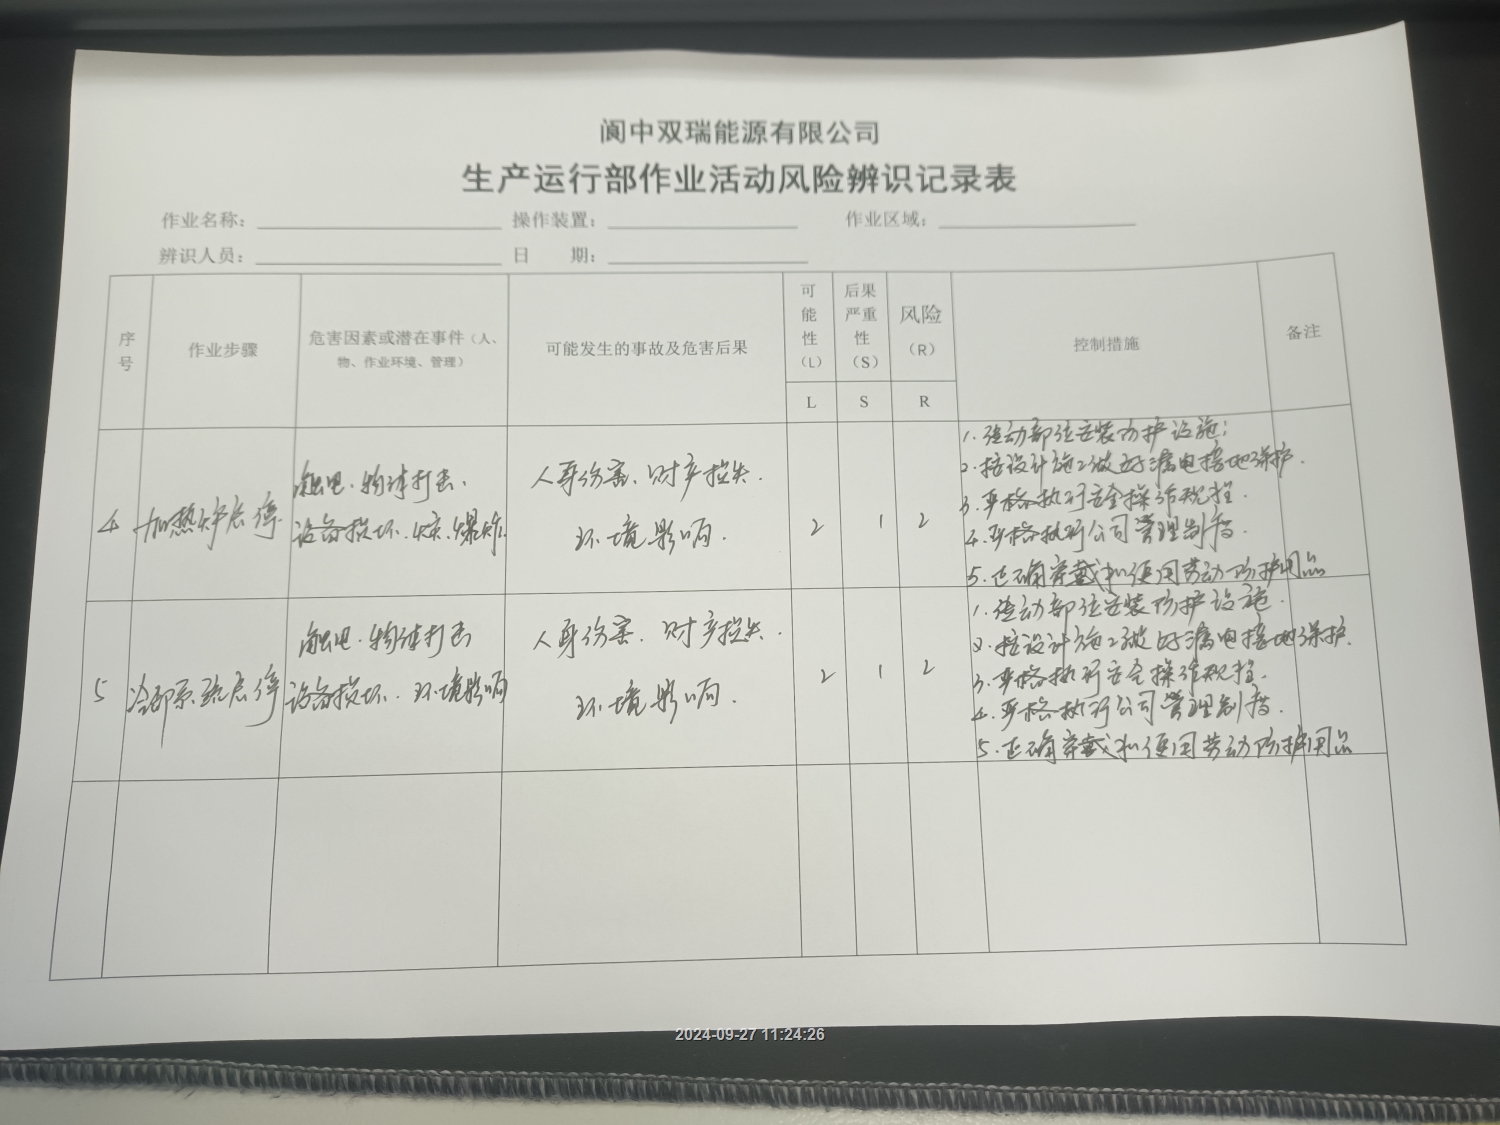 阆中双瑞能源有限公司
生产运行部作业活动风险辨识记录表
作业名称： 操作装置： 作业区域：
辨识人员： 日 期：
序号 作业步骤 危害因素或潜在事件（人、物、作业环境、管理） 可能发生的事故及危害后果 可能性（L） 后果严重性（S） 风险（R） 控制措施 备注
L S R
4 加热炉启停 触电.物体打击.
设备损坏.火灾.爆炸
人身伤害、财产损失.
环境影响.
2 1 2
1.传动部位安装防护设施;
2.按设计施工做好漏电接地保护.
3.严格执行安全操作规程.
4.严格执行公司管理制度.
5.正确穿戴和使用劳动防护用品
5 冷却系统启停 触电.物体打击
设备损坏.环境影响
人身伤害、财产损失.
环境影响.
2 1 2
1.传动部位安装防护设施.
2.按设计施工做好漏电接地保护.
3.严格执行安全操作规程.
4.严格执行公司管理制度.
5.正确穿戴和使用劳动防护用品
2024-09-27 11:24:26